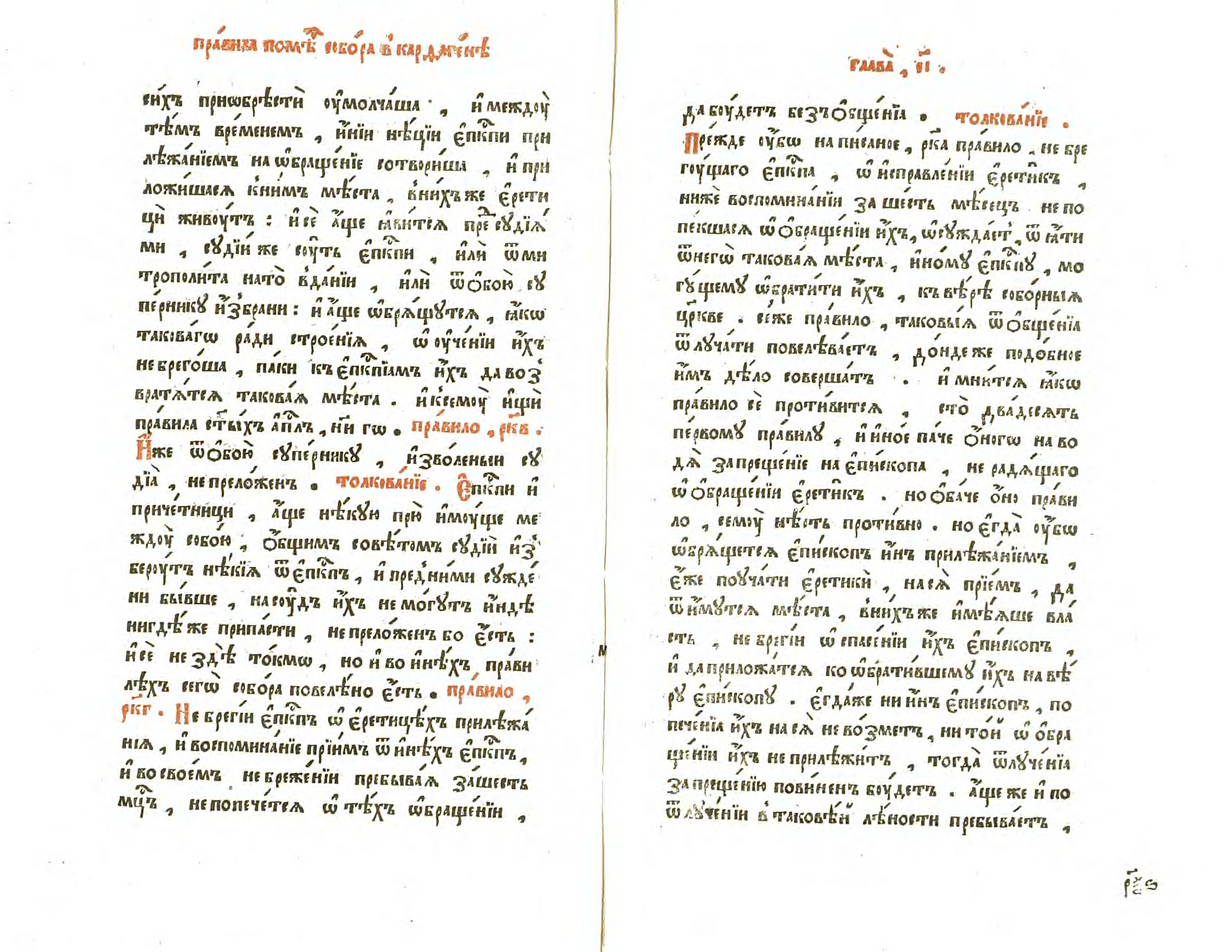 пра́вила помѣ́ собо́ра в̾ карѳаге́нѣ
си́хъ приѡбрѣстѝ оу҆молча́ша , и҆ междоу̀
тѣ́мъ вре́менемъ , и҆ні́и нѣ́цїи є҆пк҃пи при
лѣжа́нїемъ на ѡ҆браще́нїе сотвори́ша , и҆ при
ложи́шася к̾ни́мъ мѣ́ста , в̾ни́хъже є҆рети
цы̀ живоу́тъ : и҆ сѐ а҆́ще ꙗ҆ви́тся пре суди́ꙗ
ми , суди́и же соу́ть є҆пк҃пи , и҆лѝ ѿ ми
трополи́та на то̀ в̾да́нїи , и҆лѝ ѿ ѻ҆бою̀ су
пе́рнику и҆з̾бра́ни : и҆ а҆́ще ѡ҆бря́щутся , ꙗ҆́кѡ
такова́гѡ ра́ди строе́нїя , ѡ҆ оу҆че́нїи и҆́хъ
не брего́ша , па́ки къ є҆пк҃пїамъ и҆́хъ да воз̾
вратя́тся такова́я мѣ́ста . и҆ к̾семоу̀ и҆щѝ
пра́вила ст҃ы́хъ а҆пл҃ъ , н҃и гѡ . пра́вило , рк҃в .
И҆́же ѿ ѻ҆бою̀ супе́рнику , и҆зво́леныи су
дїа̀ , непрело́женъ . толкова́нїе . Є҆пк҃пи и҆
приче́тницы , а҆́ще нѣ́кую прю̀ и҆моу́ще ме
ждоу̀ собо́ю , ѻ҆́бщимъ совѣ́томъ судїѝ и҆з̾
бероу́тъ нѣ́кїя ѿ є҆пк҃пъ , и҆ пред̾ ни́ми сужде́
ни бы́вше , на соу́дъ и҆́хъ не мо́гутъ и҆́ндѣ
нигдѣ́же припа́сти , непрело́женъ бо є҆́сть :
и҆ сѐ не здѣ̀ то́кмѡ , но и҆ во и҆нѣ́хъ пра́ви
лѣхъ сегѡ̀ собо́ра повелѣ́но є҆́сть . пра́вило ,
рк҃г . Не бреги́и є҆пк҃пъ ѡ҆ є҆рети́цѣхъ прилѣжа́
нїя , и҆ воспомина́нїе прїи́мъ ѿ и҆нѣ́хъ є҆пк҃пъ ,
и҆ во свое́мъ небреже́нїи пребыва́я за́ шесть
мц҃ъ , не попече́тся ѡ҆ тѣ́хъ ѡ҆браще́нїи ,
глава̀ , є҃і .
да боу́детъ безъ ѻ҆бще́нїа . толкова́нїе .
Пре́жде оу҆́бѡ напи́саное , рк҃а пра́вило . небре
гоу́щаго є҆пк҃па , ѡ҆ и҆справле́нїи є҆рети́къ ,
нижѐ воспомина́нїи за́ шесть мѣ́сецъ непо
пе́кшася ѡ҆ ѻ҆браще́нїи и҆́хъ , ѡ҆сужда́етъ , ѿꙗ҆ти
ѿ него̀ такова́я мѣ́ста , и҆но́му є҆пк҃пу , мо
гу́щему ѡ҆брати́ти и҆́хъ , къ вѣ́рѣ собо́рныя
цр҃кве . се́же пра́вило , таковы́я ѿ ѻ҆бще́нїа
ѿлуча́ти повелѣва́етъ , до́ндеже подо́бное
и҆̀мъ дѣ́ло соверша́тъ . и҆ мни́тся ꙗ҆́кѡ
пра́вило сѐ проти́вится , сто̀ два́десять
пе́рвому пра́вилу , и҆ и҆но́е па́че ѻ҆́ногѡ наво
дя̀ запреще́нїе на є҆пи́скопа , не радя́щаго
ѡ҆ ѻ҆браще́нїи є҆рети́къ . но ѻ҆ба́че ѻ҆́но пра́ви
ло , семоу̀ нѣ́сть проти́вно . но є҆гда̀ оу҆́бѡ
ѡ҆бря́щется є҆пи́скопъ и҆́нъ прилѣжа́нїемъ ,
є҆́же поуча́ти є҆рети́ки , на ся̀ прїе́мъ , да
ѿи́мутся мѣ́ста , в̾ни́хъже и҆мѣ́яше вла́
сть , не бреги́и ѡ҆ спасе́нїи и҆́хъ є҆пи́скопъ ,
и҆ да прило́жатся ко ѡ҆брати́вшему и҆́хъ на вѣ́
ру є҆пи́скопу . є҆гда́же ни и҆́нъ є҆пи́скопъ , по
пече́нїа и҆́хъ на ся̀ не во́зметъ , ни то́й ѡ҆ ѻ҆бра
ще́нїи и҆́хъ не прилѣжи́тъ , тогда̀ ѿлуче́нїа
запреще́нїю пови́ненъ боу́детъ . а҆́щеже и҆ по
ѿлуче́нїи в̾ таковѣ́й лѣ́ности пребыва́етъ ,